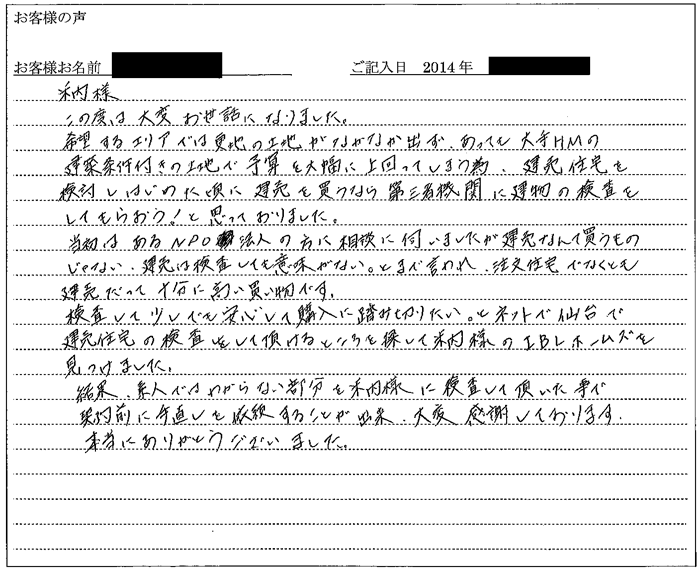 お客様の声
お客様お名前 ご記入日 2014年
禾内様
この度は大変お世話になりました。
希望するエリアでは更地の土地がなかなか出ず、あっても大手HMの
建築条件付きの土地で予算を大幅に上回ってしまう為、建売住宅を
検討しはじめた頃に建売を買うなら第三者機関に建物の検査を
してもらおう!と思っておりました。
当初はあるNPO法人の方に相談に伺いましたが建売なんて買うもの
じゃない、建売は検査しても意味がない。とまで言われ、注文住宅でなくとも
建売だって十分に高い買い物です。
検査して少しでも安心して購入に踏み切りたい。とネットで仙台で
建売住宅の検査をして頂けるところを探して禾内様のIBLホームズを
見つけました。
結果、素人ではわからない部分を禾内様に検査して頂いた事で
契約前に手直しを依頼することが出来、大変感謝しております。
本当にありがとうございました。